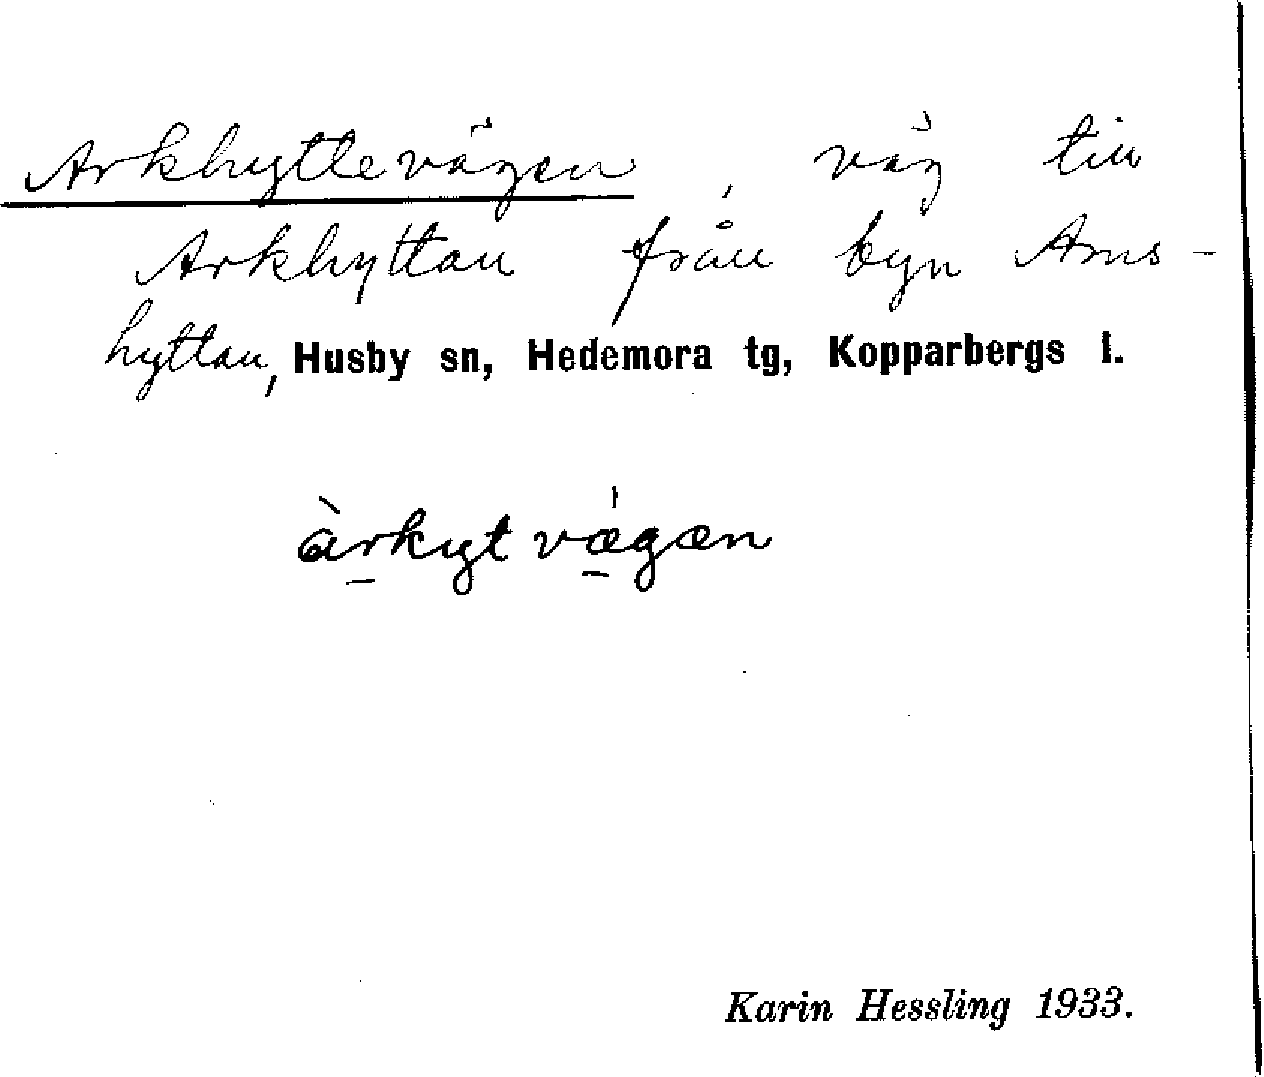 Arkhyttevägen, väg till
Arkhyttan från byn Ams-
hyttan, Husby sn, Hedemora tg, Kopparbergs l.
àrkyt vǽgæn
Karin Hessling 1933.